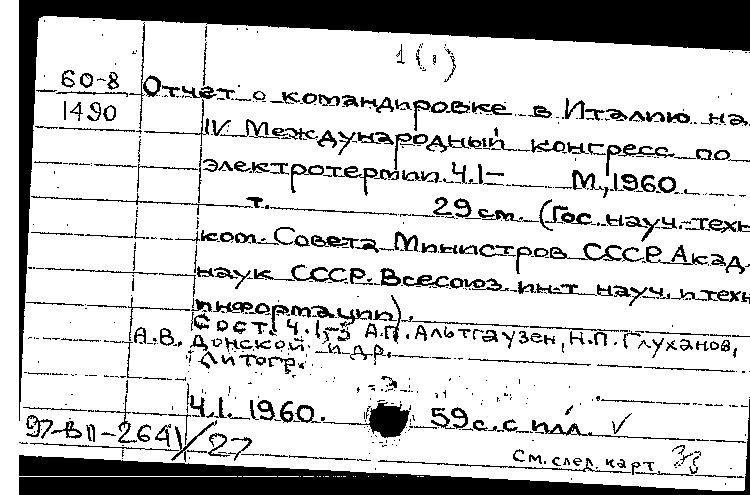 1(1)
60-8 Отчет о командировке в Италию на
1490 IV Международный конгресс по
электротермии. Ч.1- М., 1960.
т. 29 см. (Гос. науч.-техн
ком. Совета Министров СССР. Акад.
наук СССР. Всесоюз. ин-т науч. и техн
информации).
Сост. Ч.1,-3 А.П. Альтгаузен, Н.П. Глуханов,
А.В. Донской и др.
Литогр.
Ч.1. 1960. 59 с. с илл. ✓
97-ВП-2641/27
См. след. карт. 33